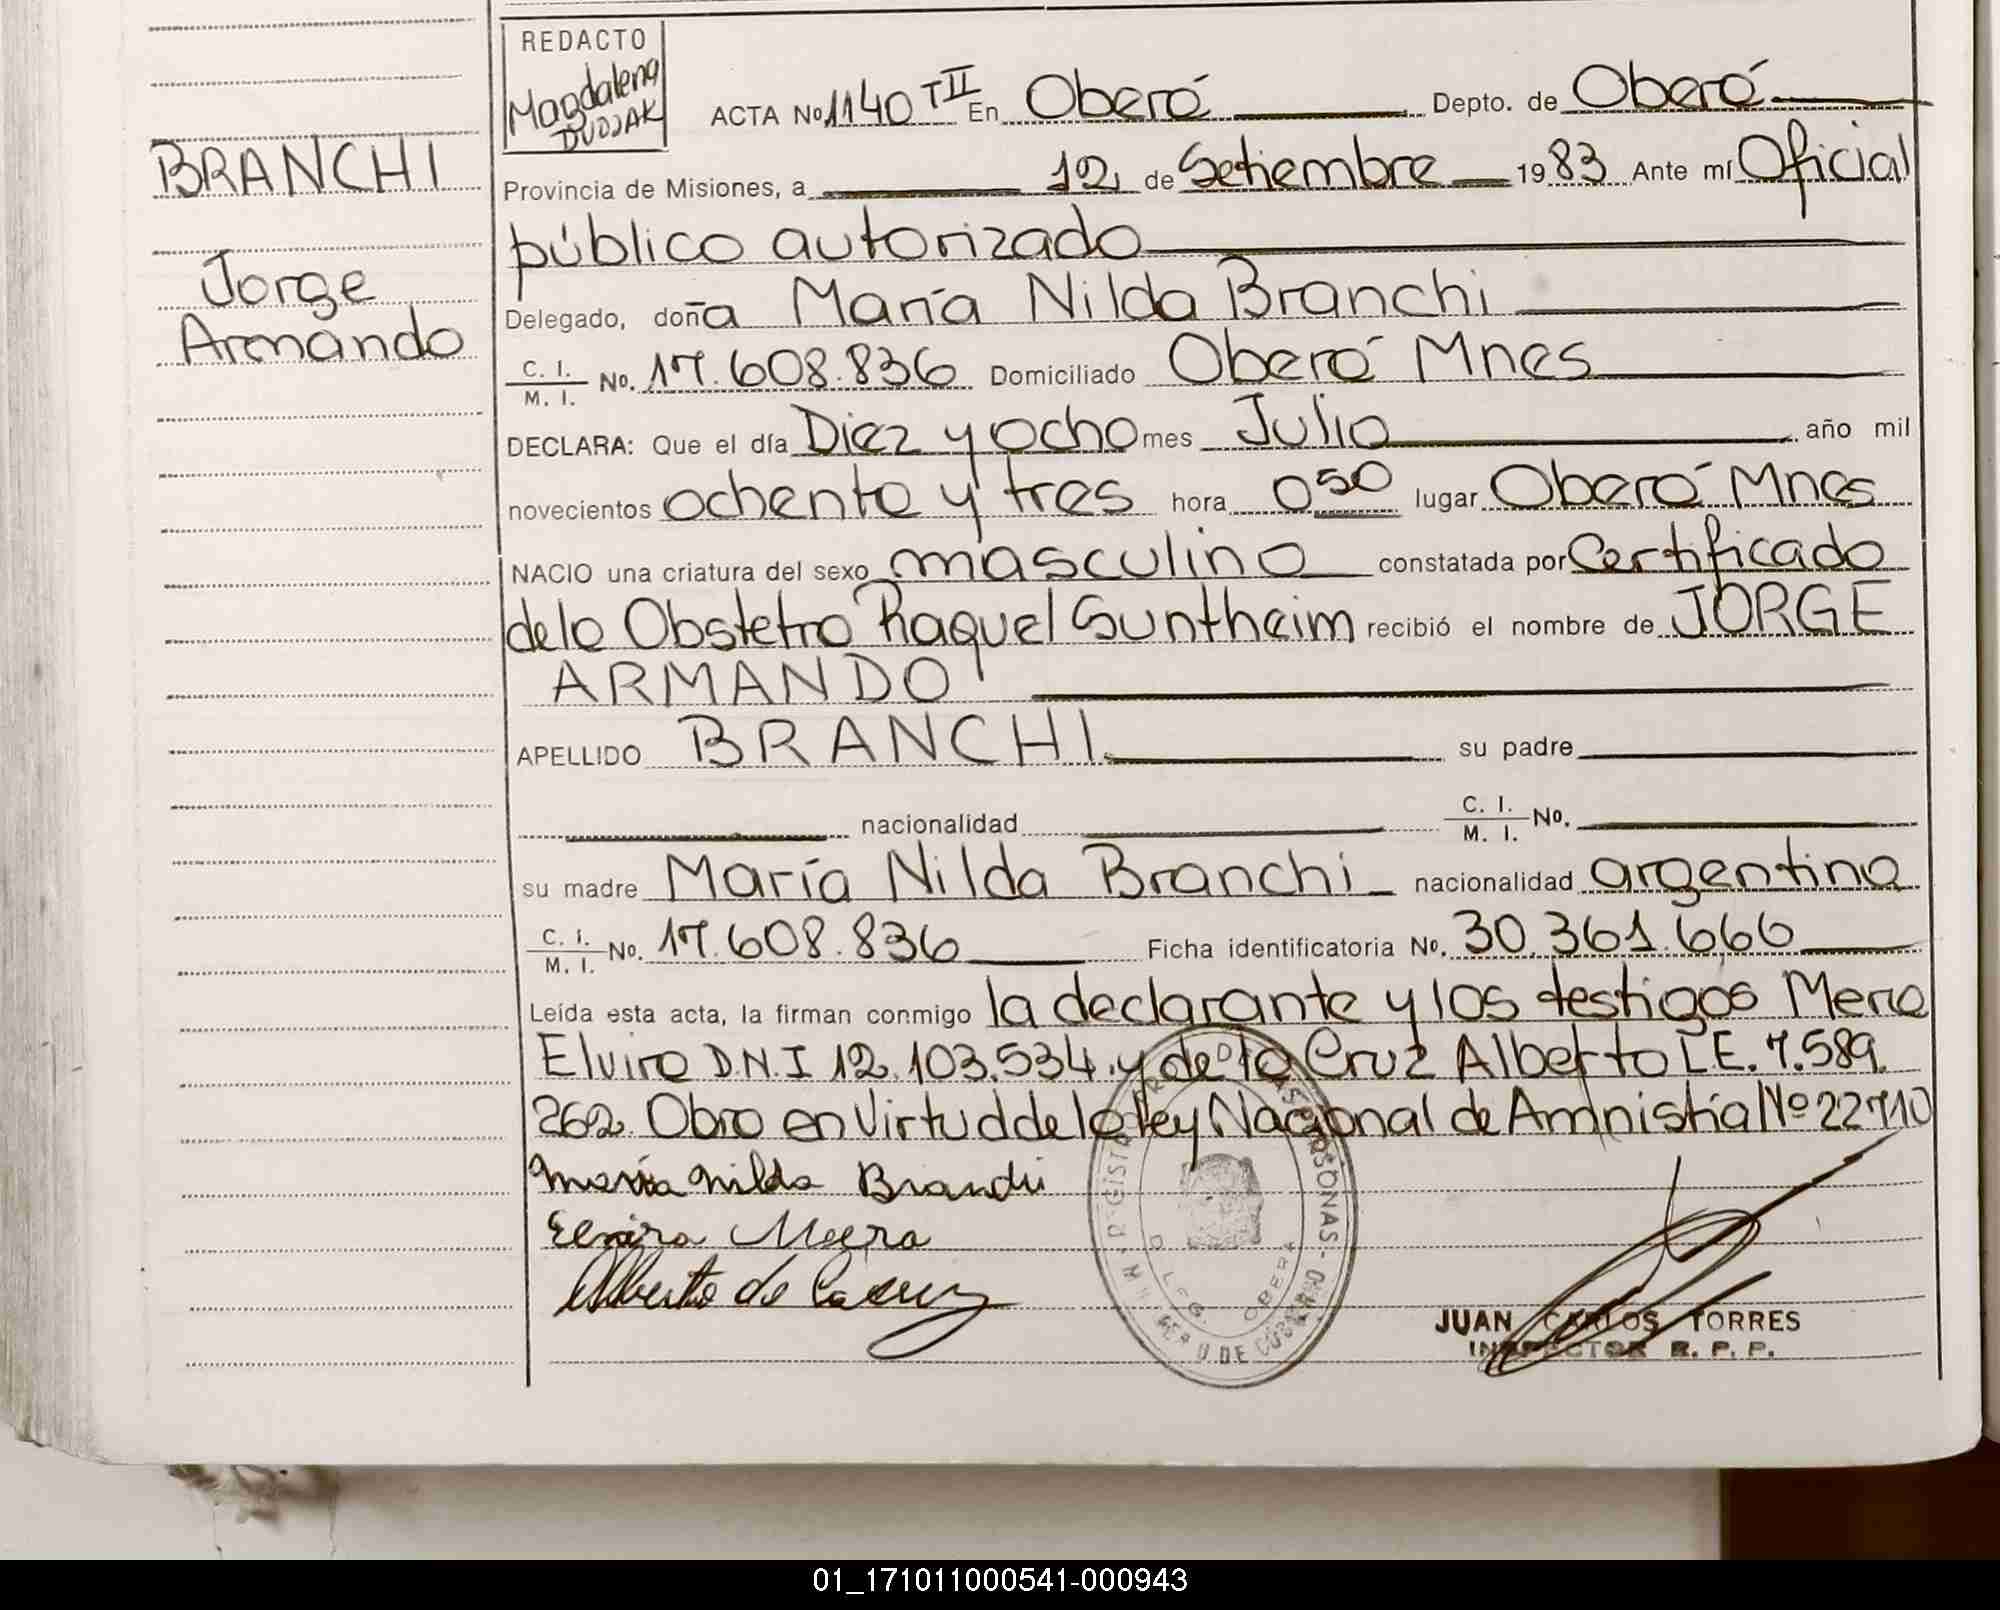 REDACTO
Magdalena
DUDJAK
ACTA No 1140 T II En Oberá Depto. de Oberá
BRANCHI
Provincia de Misiones, a 12 de Setiembre 1983 Ante mí Oficial
público autorizado
Jorge
Armando
Delegado, doña María Nilda Branchi
C. I.
M. I. No. 17.608.836 Domiciliado Oberá Mnes
DECLARA: Que el día Diez y ocho mes Julio año mil
novecientos ochenta y tres hora 0 50 lugar Oberá Mnes
NACIO una criatura del sexo masculino constatada por Certificado
de la Obstetra Raquel Suntheim recibió el nombre de JORGE
ARMANDO
APELLIDO BRANCHI su padre
nacionalidad C. I.
M. I. No.
su madre María Nilda Branchi nacionalidad argentina
C. I.
M. I. No. 17.608.836 Ficha identificatoria No. 30.361.666
Leída esta acta, la firman conmigo la declarante y los testigos Mera
Elvira D.N.I 12.103.534. y de la Cruz Alberto L.E. 7.589.
262. Obro en Virtud de la Ley Nacional de Amnistía Nº 22710
María Nilda Branchi
Elvira Mera
Alberto de la cruz
JUAN CARLOS TORRES
INSPECTOR R. P. P.
01_171011000541-000943